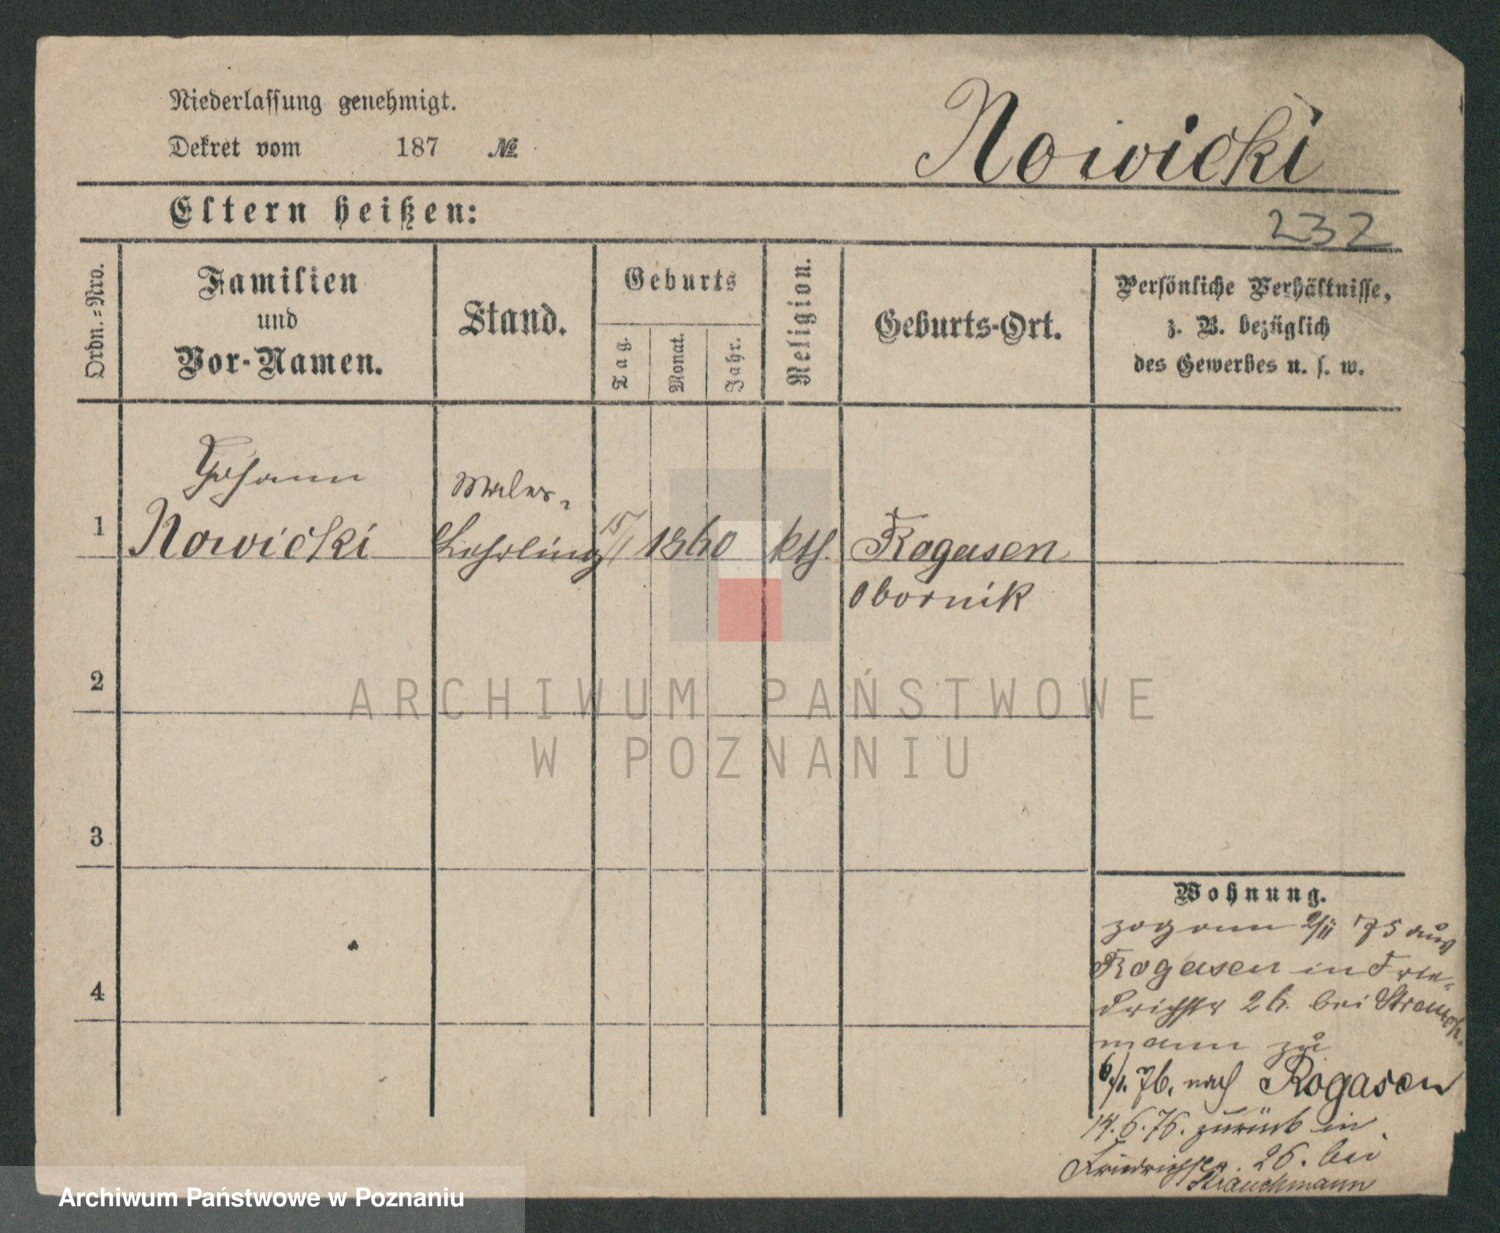 Niederlassung genehmigt.
Dekret vom 187 №
Nowicki
Eltern heißen:
232
Ordn.=Nro.
Familien
und
Vor-Namen.
Stand.
Geburts
Tag.
Monat.
Jahr.
Religion.
Geburts-Ort.
Persönliche Verhältnisse,
z. B. bezüglich
des Gewerbes u. s. w.
1
Johann
Nowicki
Maler-
Lehrling
15/1 1860
kth.
Rogasen
Obornik
2
3
4
Wohnung.
zog am 2/11 75 aus
Rogasen in Frie-
drichstr 26. bei Strauch-
mann zu
6/1. 76. nach Rogasen
14.6.76. zurück in
Friedrichstr. 26. bei
Strauchmann
ARCHIWUM PAŃSTWOWE
W POZNANIU
Archiwum Państwowe w Poznaniu